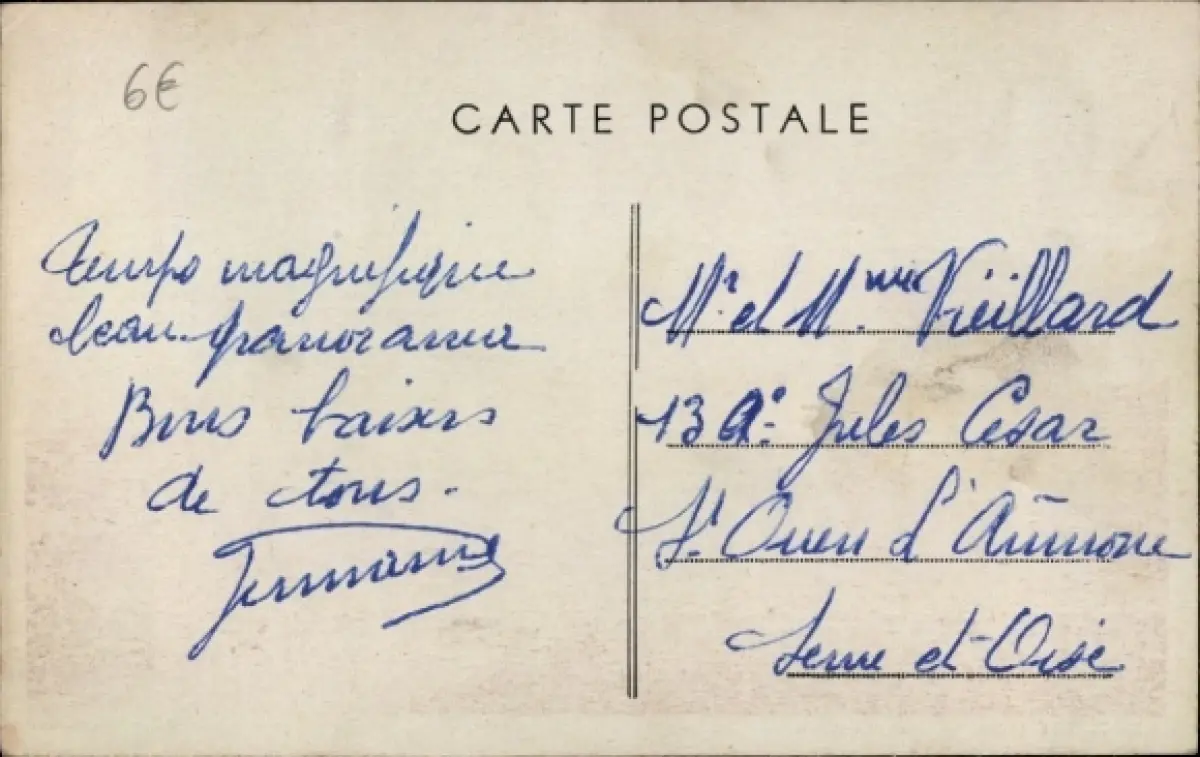 6€
CARTE POSTALE
Temps magnifique
beau panorama
Bons baisers
de tous.
Germaine
Mr. et Mme Vieillard
13 Ae. Jules César
St. Ouen d'Aumone
Seine et-Oise